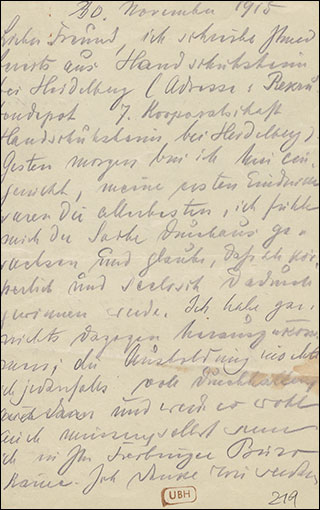 20. November 1915
Lieber Freund, ich schreibe Ihnen
bereits aus Handschuhsheim
bei Heidelberg (Adresse: Rekru
tendepot 7. Korporalschaft
Handschuhsheim, bei Heidelberg)
Gestern morgen bin ich hier ein
gerückt, meine ersten Eindrücke
waren die allerbesten, ich fühle
mich der Sache durchaus ge
wachsen und glaube, dass ich kör
perlich und seelisch dadurch
gewinnen werde. Ich habe gar
nichts dagegen
die Ausbildung möchte
ich jedenfalls
und
auch selbst wenn
ich in Ihr Büro
käme. Ich
UBH
219